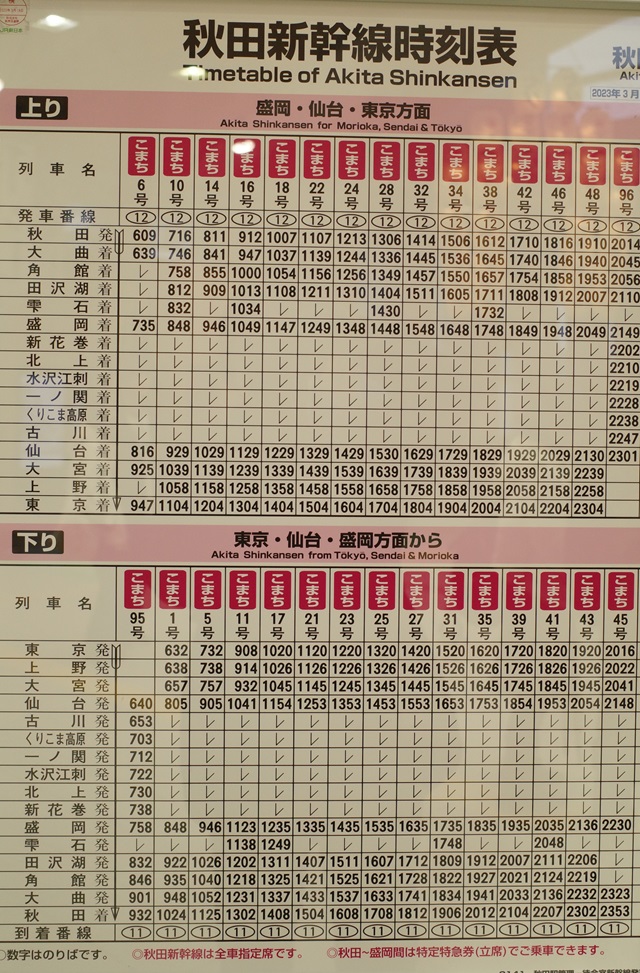 秋田新幹線時刻表
Timetable of Akita Shinkansen
2023年3月
上り 盛岡・仙台・東京方面
Akita Shinkansen for Morioka, Sendai & Tōkyō
列車名 こまち6号 こまち10号 こまち14号 こまち16号 こまち18号 こまち22号 こまち24号 こまち28号 こまち32号 こまち34号 こまち38号 こまち42号 こまち46号 こまち48号 こまち96号
発車番線 12 12 12 12 12 12 12 12 12 12 12 12 12 12 12
秋田発 609 716 811 912 1007 1107 1213 1306 1414 1506 1612 1710 1816 1910 2014
大曲着 639 746 841 947 1037 1139 1244 1336 1445 1536 1645 1740 1846 1940 2045
角館着 レ 758 855 1000 1054 1156 1256 1349 1457 1550 1657 1754 1858 1953 2056
田沢湖着 レ 812 909 1013 1108 1211 1310 1404 1511 1605 1711 1808 1912 2007 2110
雫石着 レ 832 レ 1034 レ レ レ 1430 レ レ 1732 レ レ レ レ
盛岡着 735 848 946 1049 1147 1249 1348 1448 1548 1648 1748 1849 1948 2049 2149
新花巻着 レ レ レ レ レ レ レ レ レ レ レ レ レ レ 2202
北上着 レ レ レ レ レ レ レ レ レ レ レ レ レ レ 2210
水沢江刺着 レ レ レ レ レ レ レ レ レ レ レ レ レ レ 2219
一ノ関着 レ レ レ レ レ レ レ レ レ レ レ レ レ レ 2228
くりこま高原着 レ レ レ レ レ レ レ レ レ レ レ レ レ レ 2238
古川着 レ レ レ レ レ レ レ レ レ レ レ レ レ レ 2247
仙台着 816 929 1029 1129 1229 1329 1429 1530 1629 1729 1829 1929 2029 2130 2301
大宮着 925 1039 1139 1239 1339 1439 1539 1639 1739 1839 1939 2039 2139 2239
上野着 レ 1058 1158 1258 1358 1458 1558 1658 1758 1858 1958 2058 2158 2258
東京着 947 1104 1204 1304 1404 1504 1604 1704 1804 1904 2004 2104 2204 2304
下り 東京・仙台・盛岡方面から
Akita Shinkansen from Tōkyō, Sendai & Morioka
列車名 こまち95号 こまち1号 こまち5号 こまち11号 こまち17号 こまち21号 こまち23号 こまち25号 こまち27号 こまち31号 こまち35号 こまち39号 こまち41号 こまち43号 こまち45号
東京発 632 732 908 1020 1120 1220 1320 1420 1520 1620 1720 1820 1920 2016
上野発 638 738 914 1026 1126 1226 1326 1426 1526 1626 1726 1826 1926 2022
大宮発 657 757 932 1045 1145 1245 1345 1445 1545 1645 1745 1845 1945 2041
仙台発 640 805 905 1041 1154 1253 1353 1453 1553 1653 1753 1854 1953 2054 2148
古川発 653 レ レ レ レ レ レ レ レ レ レ レ レ レ レ
くりこま高原発 703 レ レ レ レ レ レ レ レ レ レ レ レ レ レ
一ノ関発 712 レ レ レ レ レ レ レ レ レ レ レ レ レ レ
水沢江刺発 722 レ レ レ レ レ レ レ レ レ レ レ レ レ レ
北上発 730 レ レ レ レ レ レ レ レ レ レ レ レ レ レ
新花巻発 738 レ レ レ レ レ レ レ レ レ レ レ レ レ レ
盛岡発 758 848 946 1123 1235 1335 1435 1535 1635 1735 1835 1935 2035 2136 2230
雫石発 レ レ レ 1138 1249 レ レ レ レ 1748 レ レ 2048 レ レ
田沢湖発 832 922 1026 1202 1311 1407 1511 1607 1712 1809 1912 2007 2111 2206 レ
角館発 846 935 1040 1218 1325 1421 1525 1621 1728 1822 1927 2021 2124 2219 レ
大曲発 901 948 1052 1231 1337 1433 1537 1633 1741 1834 1941 2033 2136 2232 2323
秋田着 932 1024 1125 1302 1408 1504 1608 1708 1812 1906 2012 2104 2207 2302 2353
到着番線 11 11 11 11 11 11 11 11 11 11 11 11 11 11 11
○数字はのりばです。 ○秋田新幹線は全車指定席です。 ○秋田~盛岡間は特定特急券(立席)でご乗車できます。